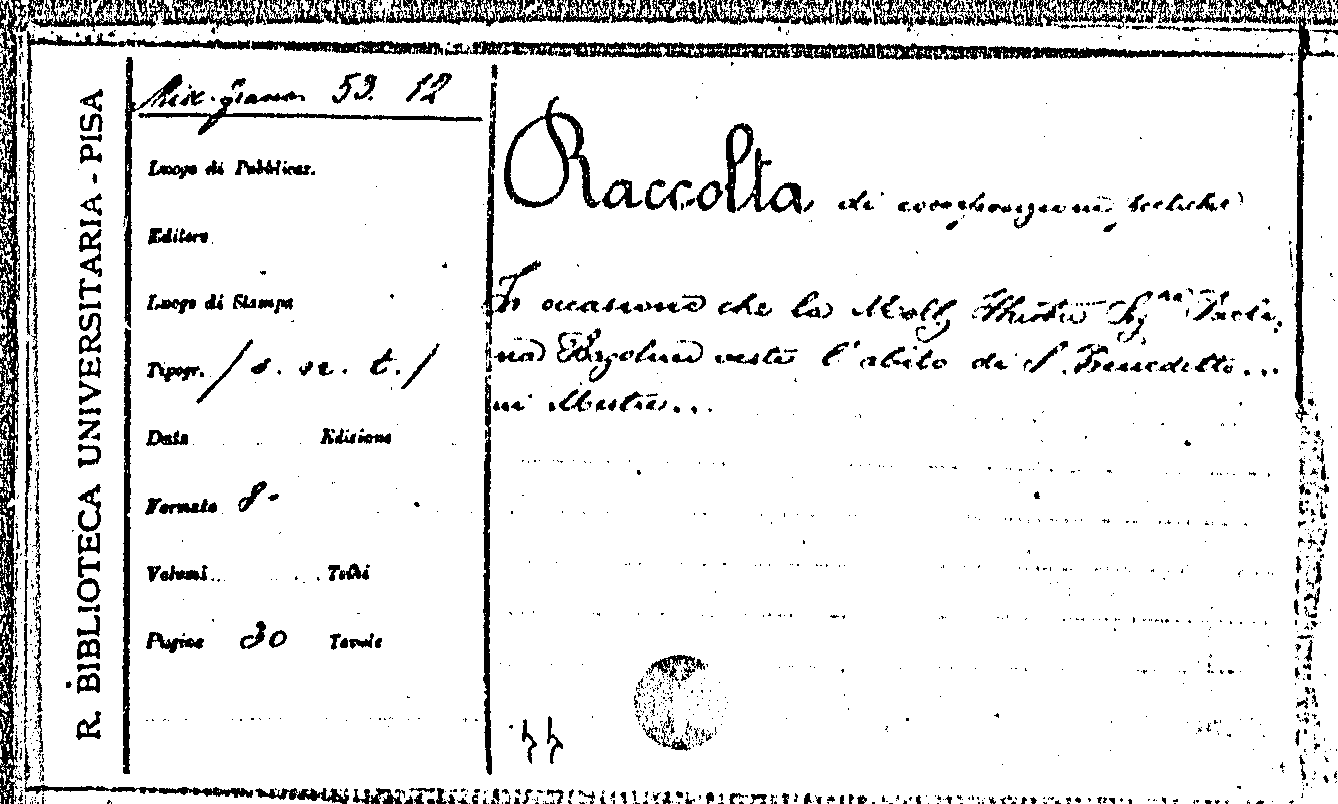 R. BIBLIOTECA UNIVERSITARIA - PISA
53. 12
Luogo di Pubblicaz.
Editore
Luogo di Stampa
Tipogr. / s. n. t. /
Data Edizione
Formato 8-
Volumi Tomi
Pagine 30 Tavole
Raccolta di composizioni poetiche
In occasione che la Moll. Illustre Sig.ra Paoli,
na veste l'abito di S. Benedetto...
in Mestre...